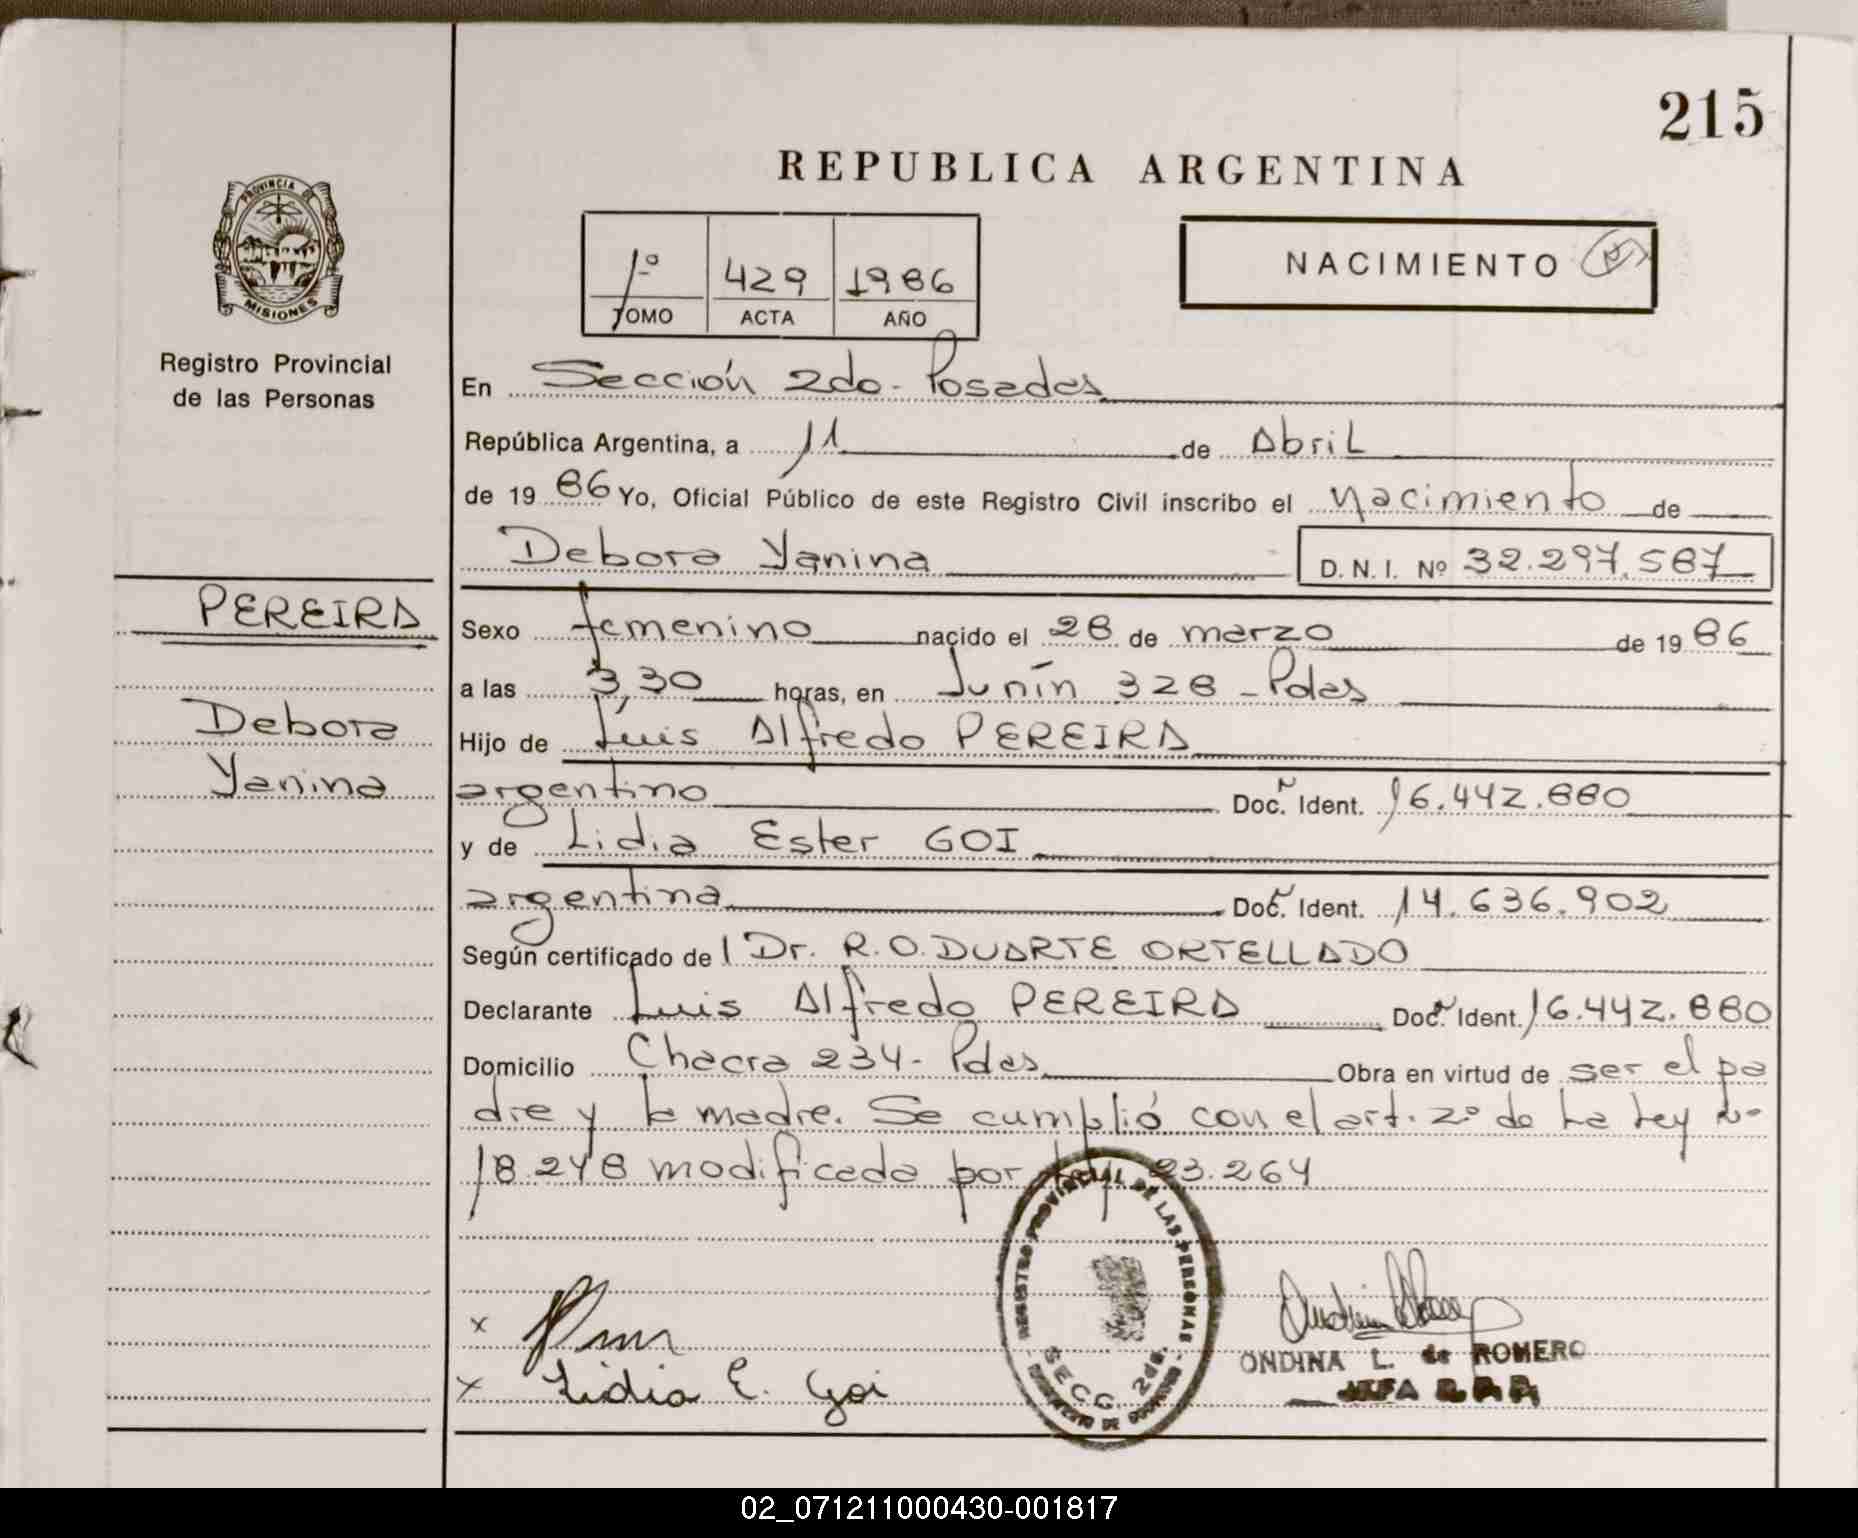 215
REPUBLICA ARGENTINA
PROVINCIA DE
MISIONES
Registro Provincial
de las Personas
1º 429 1986
TOMO ACTA AÑO
NACIMIENTO
En Sección 2do- Posadas
República Argentina, a 11 de Abril
de 1986 Yo, Oficial Público de este Registro Civil inscribo el nacimiento de
Debora Yanina D.N.I. Nº 32.297.587
PEREIRA
Debora
Yanina
Sexo femenino nacido el 28 de marzo de 1986
a las 3,30 horas, en Junín 328 - Pdas
Hijo de Luis Alfredo PEREIRA
argentino Doc. Ident. 16.442.880
y de Lidia Ester GOI
argentina Doc. Ident. 14.636.902
Según certificado de l Dr. R.O. DUARTE ORTELLADO
Declarante Luis Alfredo PEREIRA Doc. Ident. 16.442.880
Domicilio Chacra 234- Pdas Obra en virtud de ser el pa
dre y la madre. Se cumplió con el art. 2º de la Ley nº
18.248 modificada por 23.264
REGISTRO PROVINCIAL DE LAS PERSONAS
SECC 2da.
x
x Lidia E. Goi
ONDINA L. de ROMERO
JEFA R.P.P.
02_071211000430-001817